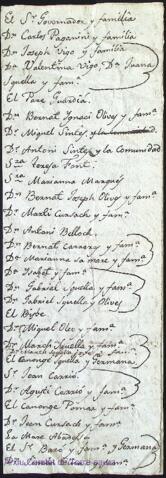 El Sr. Governador y familia
Dn. Carlos Paganini y familia
Dn. Joseph Vigo y familia
Dn. Valentina Vigo, Da. Juana
Squella y famª.
El Pare Guardiá.
Dn. Bernat Ignaci Olives y famª.
Dr. Miquel Sintes y la
Dr. Antoni Sintes y la Comunidad
Sra. Teresa Font.
Sra. Marianna Marqués
Dn. Bernat Joseph Olives y famª.
Dn. Martí Cursach y famª.
Dn. Antoni Belloch.
Dn. Bernat Carreras y famª.
Da. Marianna sa mare y famª.
Da. Isabet y famª.
Dn. Gabriel Squella y famª.
Dn. Gabriel Squella y Olives
El Bisbe
Dn. Miquel Oleo y famª.
Dn. March Squella y famª.
El Canonge Squella y Germana
Sr. Juan Carrió.
Dn. Agustí Carrió y famª.
El Canonge Pomar y famª.
Dr. Juan Cursach y famª.
La Mare Abadessa
El Sr. Baró y famª. y Germana